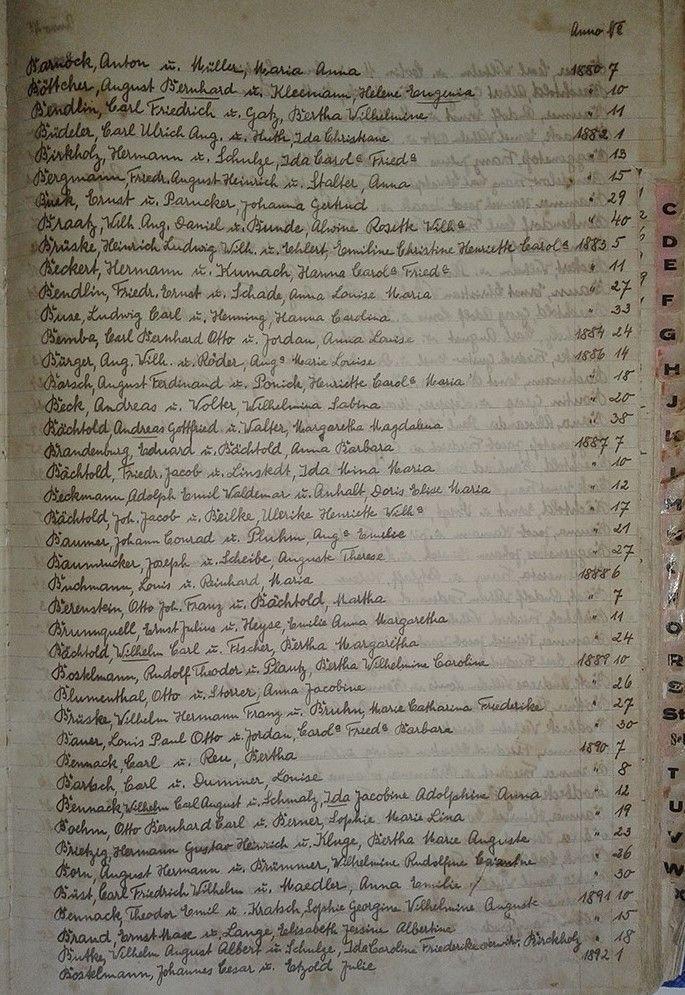 Anno №
Barnöck, Anton u. Müller, Maria Anna 1880 7
Böttcher, August Bernhard u. Kleemann, Helene Eugenia " 10
Bendlin, Carl Friedrich u. Gatz, Bertha Wilhelmine " 11
Büdeler, Carl Ulrich Aug. u. Huth, Ida Christiane 1882 1
Birkholz, Hermann u. Schulze, Ida Carol^e Fried^e " 13
Bergmann, Friedr. August Heinrich u. Stalter, Anna " 15
Ernst u. Parucker, Johanna Gertrud " 29
Braatz, Wilh. Aug. Daniel u. Bunde, Alwine Rosette Wilh^e " 40
Brüske, Heinrich Ludwig Wilh. u. Ehlert, Emiline Christine Henriette Carol^e 1883 5
Beckert, Hermann u. Kumach, Hanna Carol^e Fried^e " 11
Bendlin, Friedr. Ernst u. Schade, Anna Louise Maria " 27
Buse, Ludwig Carl u. Henning, Hanna Carolina " 33
Bemba, Carl Bernhard Otto u. Jordan, Anna Louise 1884 24
Bürger, Aug. Wilh. u. Röder, Aug^e Marie Louise 1886 14
Barsch, August Ferdinand u. Ponick, Henriette Carol^e Maria " 18
Beck, Andreas u. Wolter, Wilhelmina Sabina " 20
Bächtold, Andreas Gottfried u. Walter, Margaretha Magdalena " 38
Brandenburg, Eduard u. Bächtold, Anna Barbara 1887 7
Bächtold, Friedr. Jacob u. Linstedt, Ida Mina Maria " 10
Beckmann, Adolph Emil Waldemar u. Anhalt, Doris Elise Maria " 12
Bächtold, Joh. Jacob u. Beilke, Ulerike Henriette Wilh^e " 17
Baumer, Johann Conrad u. Pluhm, Aug^e Emilie " 21
Baumrucker, Joseph u. Scheibe, Auguste Therese " 27
Buchmann, Louis u. Reinhard, Maria 1888 6
Berenstein, Otto Joh. Franz u. Bächtold, Martha " 7
Brunnquell, Ernst Julius u. Heyse, Emilie Anna Margaretha " 11
Bächtold, Wilhelm Carl u. Fischer, Bertha Margaretha " 24
Bostelmann, Rudolf Theodor u. Plautz, Bertha Wilhelmine Caroline 1889 10
Blumenthal, Otto u. Storrer, Anna Jacobine " 26
Brüske, Wilhelm Hermann Franz u. Bruhn, Marie Catharina Friederike " 27
Bauer, Louis Paul Otto u. Jordan, Carol^e Fried^e Barbara " 30
Bennack, Carl u. Reu, Bertha 1890 7
Bartsch, Carl u. Dummer, Louise " 8
Bennack, Wilhelm Carl August u. Schmalz, Ida Jacobine Adolphine Anna " 12
Boehm, Otto Bernhard Carl u. Berner, Sophie Marie Lina " 19
Brietzig, Hermann Gustav Heinrich u. Kluge, Bertha Marie Auguste " 23
Born, August Hermann u. Brümmer, Wilhelmine Rudolfine " 26
Büst, Carl Friedrich Wilhelm u. Maedler, Anna Emilie " 30
Bennack, Theodor Emil u. Kratsch, Sophie Georgine Wilhelmine Auguste 1891 10
Brand, Ernst Mase u. Lange, Elisabeth Jessine Albertine " 15
Butke, Wilhelm August Albert u. Schulze, Ida Caroline Friederike verwitw. Birckholz " 18
Bostelmann, Johannes Cesar u. Etzold Julie 1892 1
C
D
E
F
G
H
J
K
L
M
O
R
S
St
T
U
V
W